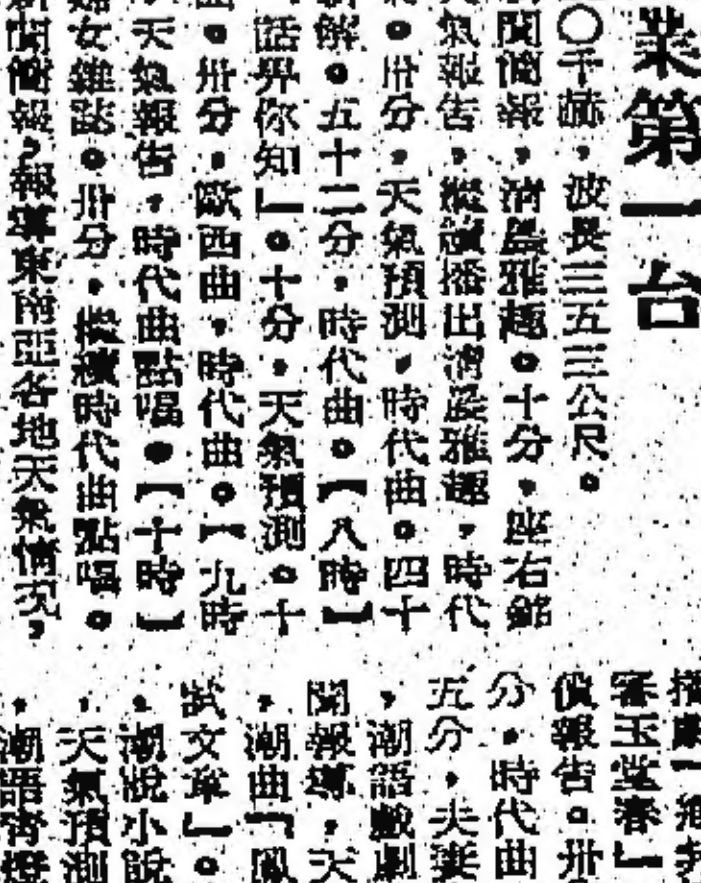 業第一台
〇千赫，波長三五三公尺。
聞簡報，清晨雅趣。十分，座右銘
氣報告，繼續播出清晨雅趣，時代
。卅分，天氣預測，時代曲。四十
解。五十二分，時代曲。【八時】
話畀你知」。十分，天氣預測。十
。卅分，歐西曲，時代曲。【九時
天氣報告，時代曲點唱。【十時】
婦女雜誌。卅分，繼續時代曲點唱。
聞簡報，報導東南亞各地天氣情況，
審玉堂春」
價報告。卅
分，時代曲
五分，夫妻
，潮語戲劇
聞報導，天
，潮曲「鳳
試文章」。
，潮說小說
，天氣預測
，潮語